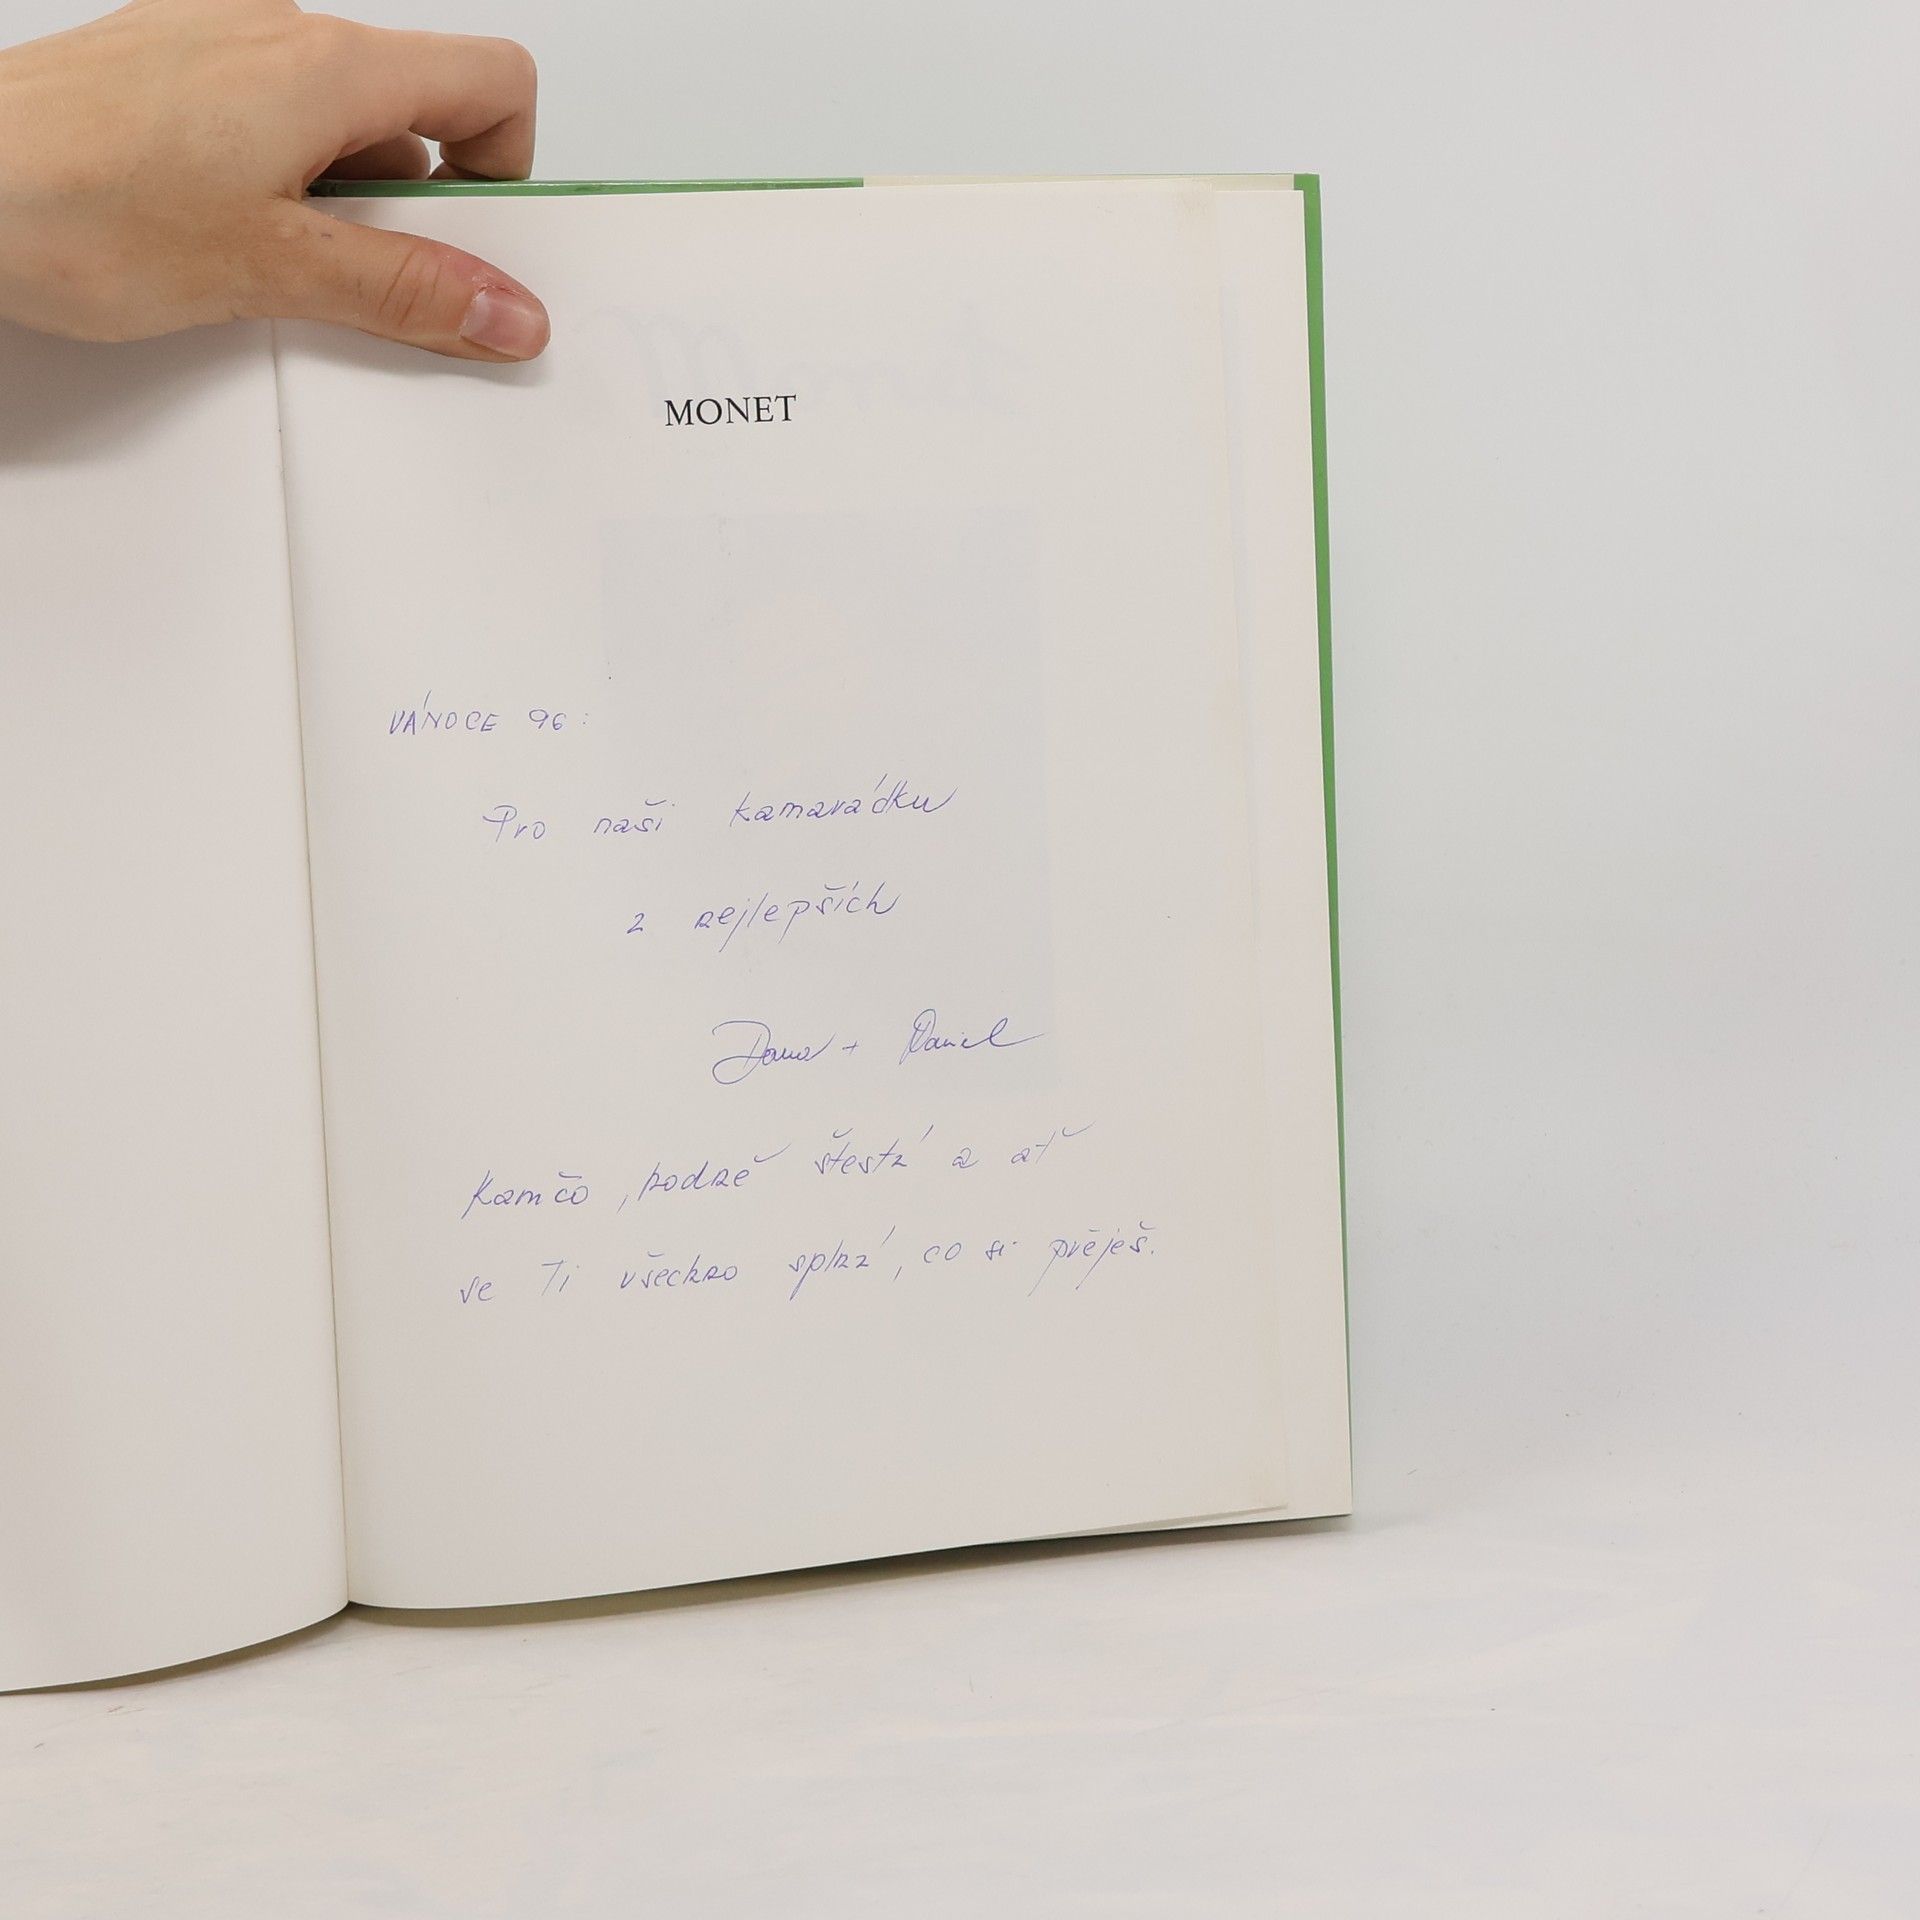 MONET
VÁNOCE 96:
Pro naši kamarádku
z nejlepších
Dana + Daniel
Kamčo, hodně štestí a ať
se Ti všechno splní, co si přeješ.